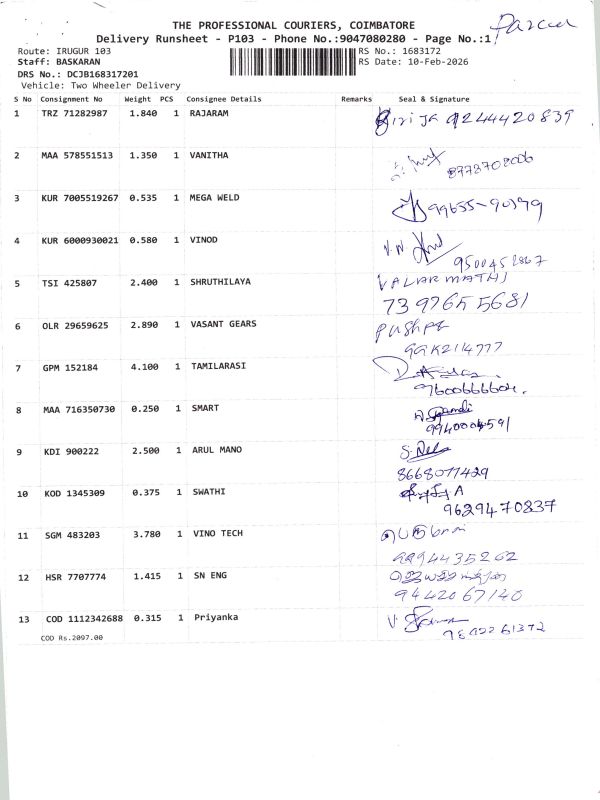 THE PROFESSIONAL COURIERS, COIMBATORE
Parcel
Delivery Runsheet - P103 - Phone No.:9047080280 - Page No.:1
Route: IRUGUR 103
RS No.: 1683172
Staff: BASKARAN
RS Date: 10-Feb-2026
DRS No.: DCJB168317201
Vehicle: Two Wheeler Delivery
S No Consignment No Weight PCS Consignee Details Remarks Seal & Signature
1 TRZ 71282987 1.840 1 RAJARAM
2 MAA 578551513 1.350 1 VANITHA
8778708006
3 KUR 7005519267 0.535 1 MEGA WELD
4 KUR 6000930021 0.580 1 VINOD
5 TSI 425807 2.400 1 SHRUTHILAYA VALARMATHI
73 9765 5681
6 OLR 29659625 2.890 1 VASANT GEARS Pushpa
7 GPM 152184 4.100 1 TAMILARASI
9600666604.
8 MAA 716350730 0.250 1 SMART
9 KDI 900222 2.500 1 ARUL MANO
8668077429
10 KOD 1345309 0.375 1 SWATHI
96294 70837
11 SGM 483203 3.780 1 VINO TECH
9994435262
12 HSR 7707774 1.415 1 SN ENG
9442067140
13 COD 1112342688 0.315 1 Priyanka
COD Rs.2097.00